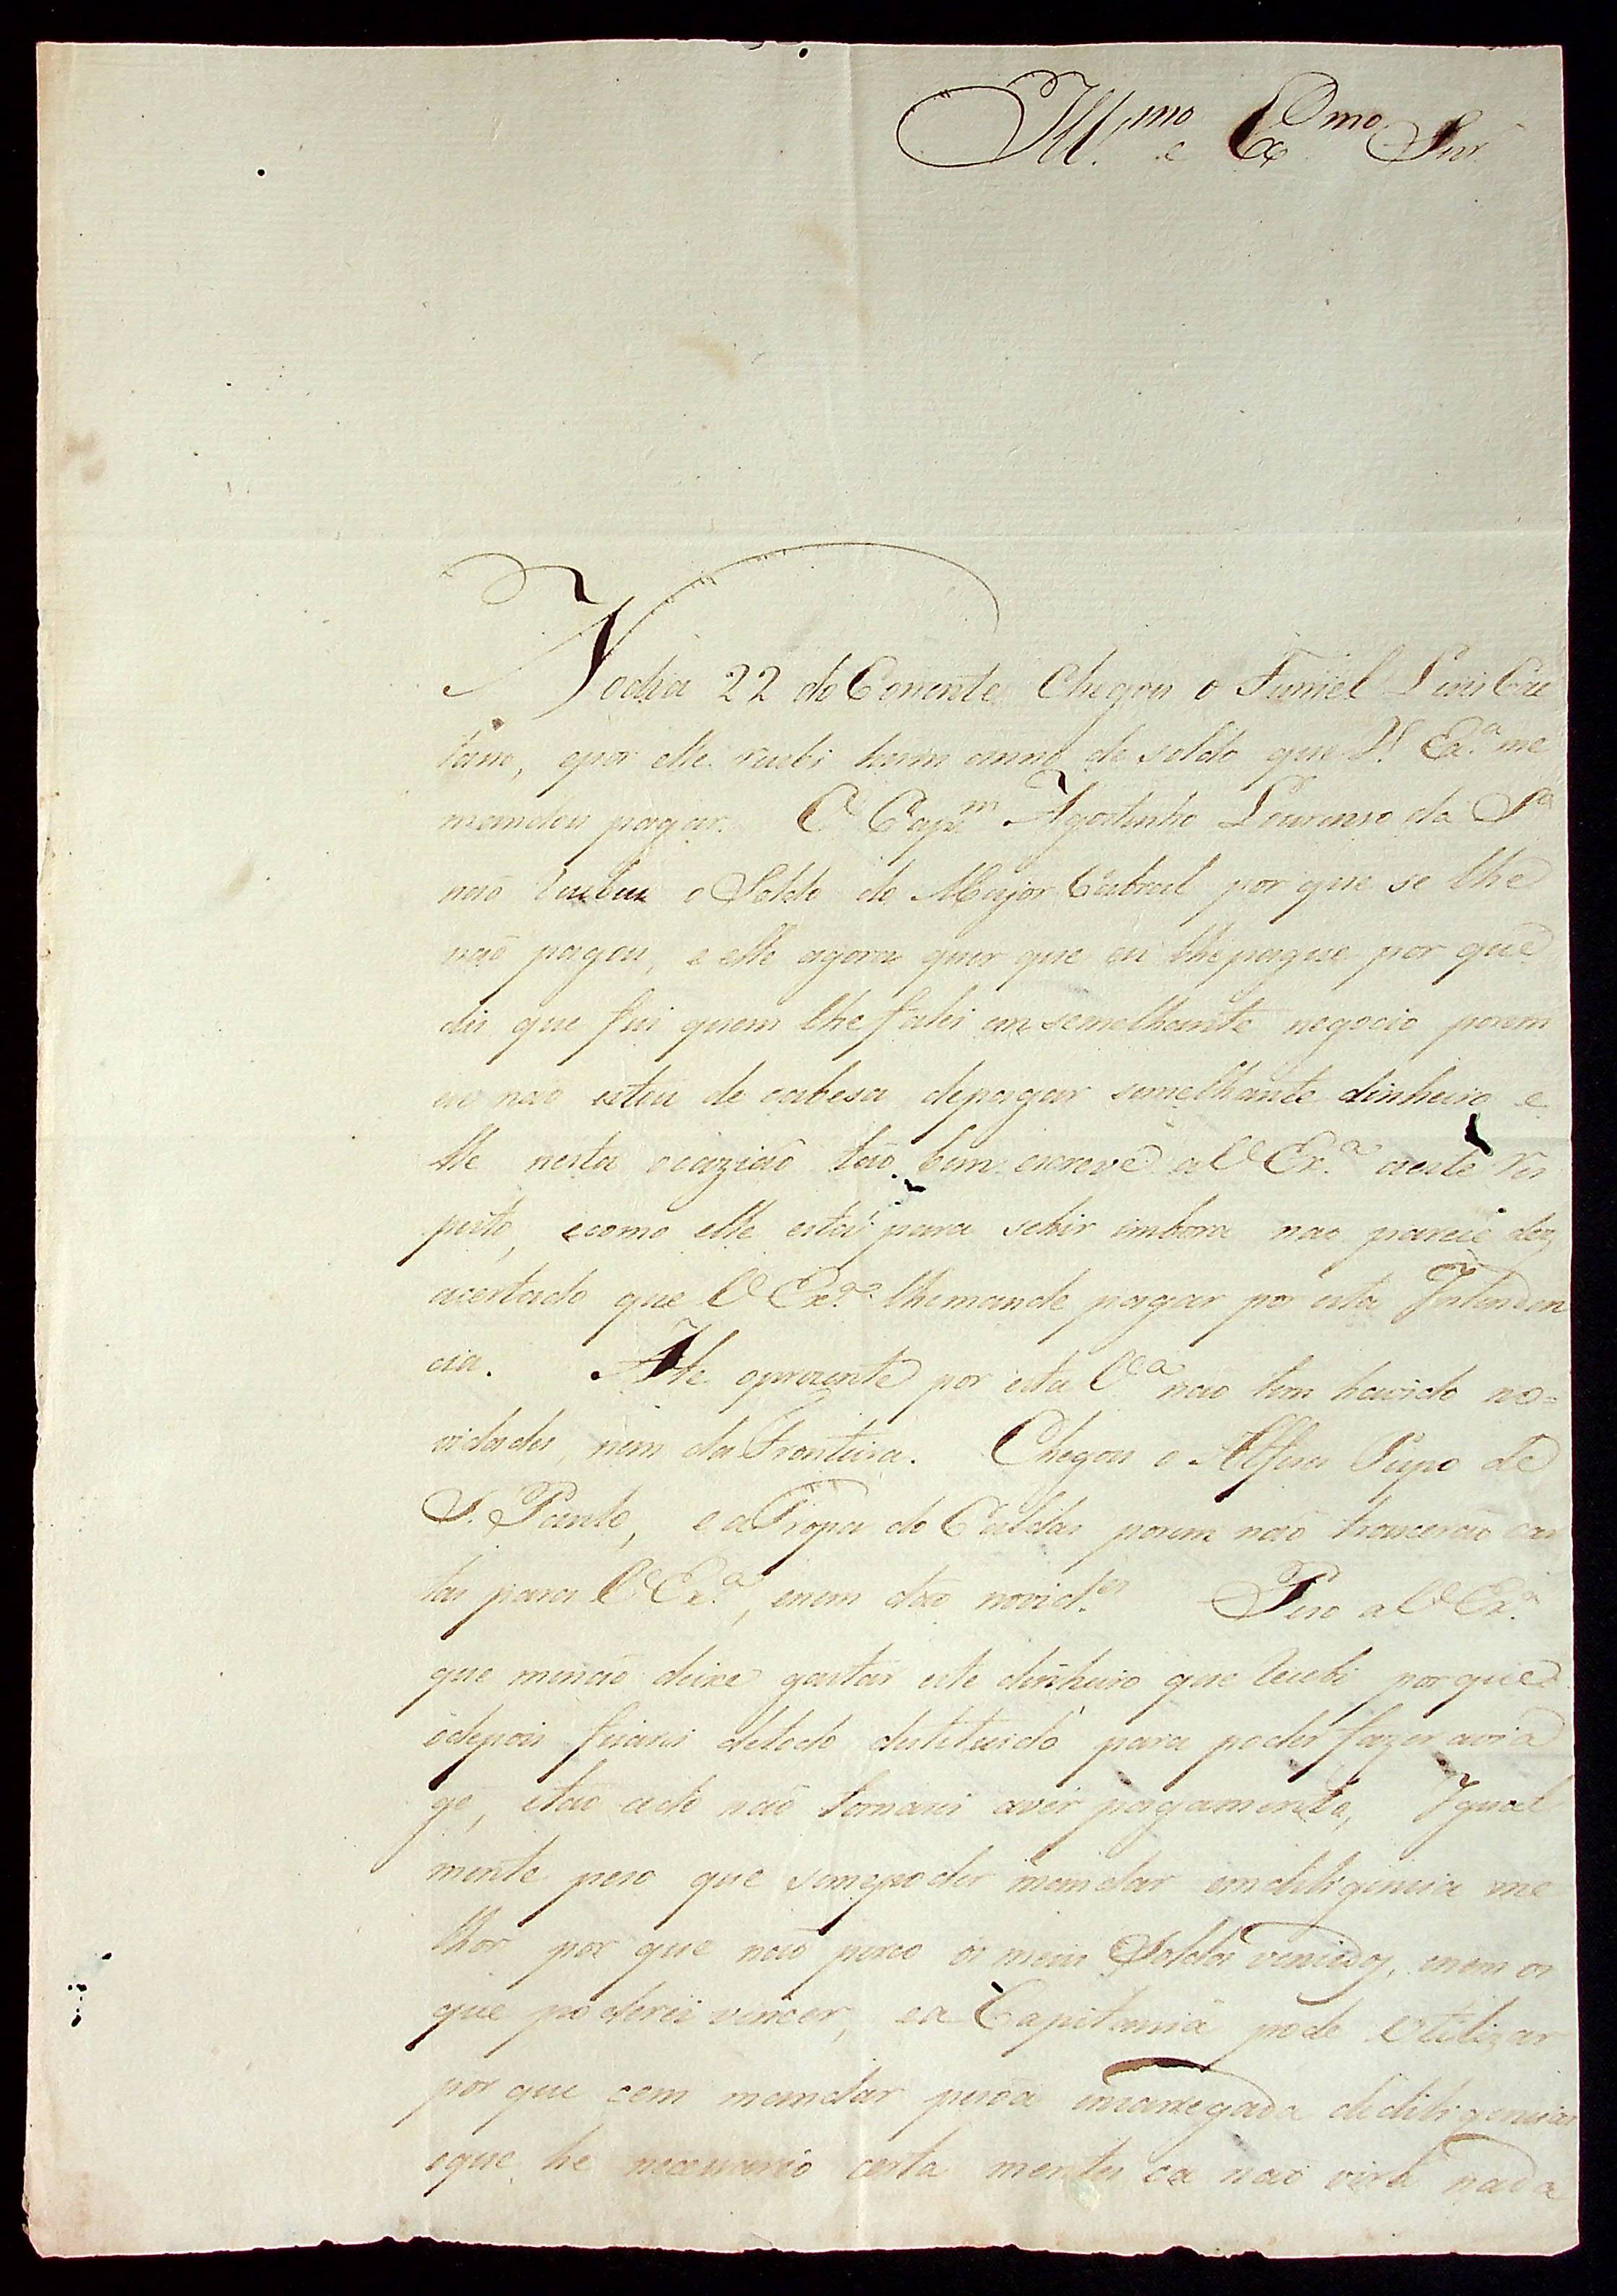 Ill.mo e Ex.mo Snr.
No dia 22 do Corrente Chegou o Furriel Luis Cae
tano, epor elle recebi hum anno de soldo que V. Ex.a me
mandou pagar. O Capm Agostinho Lourenso da S.a
não recebeu o Soldo do Major Cabral por que se lhe
não pagou, e elle agora quer que eu lhepague por que
dis que fui quem lhe falei em semelhante negocio porem
eu não estou de cabesa depagar semelhante dinheiro e
lle nesta ocazião tão bem escreve a V Ex.a aeste res
peito, ecomo elle está para sehir imbora não parece dez
acertado que V Ex.a lhemande pagar por esta Intenden
cia. Athe oprezente por esta V.a não tem havido no=
vidades, nem da Fronteira. Chegou o Alferes Pupo de
S. Paulo, e aTropa do Caldas porem não trouxerão car
tas para V Ex.a, enem dão novid.es Peso a V Ex.a
que menão deixe gastar este dinheiro que recebi por que
odepois ficarei detodo destituido para poder fazer avia
ge, etão cedo não tornarei aver pagamento, Igual
mente peso que semepoder mandar emdiligencia me
lhor por que não perco os meus Soldos vencidos, enem os
que poderei vencer, ea Capitania pode Utilizar
por que sem mandar pesoa emcarregada dediligenciar
oque he necessario certa mente ca não virá nada